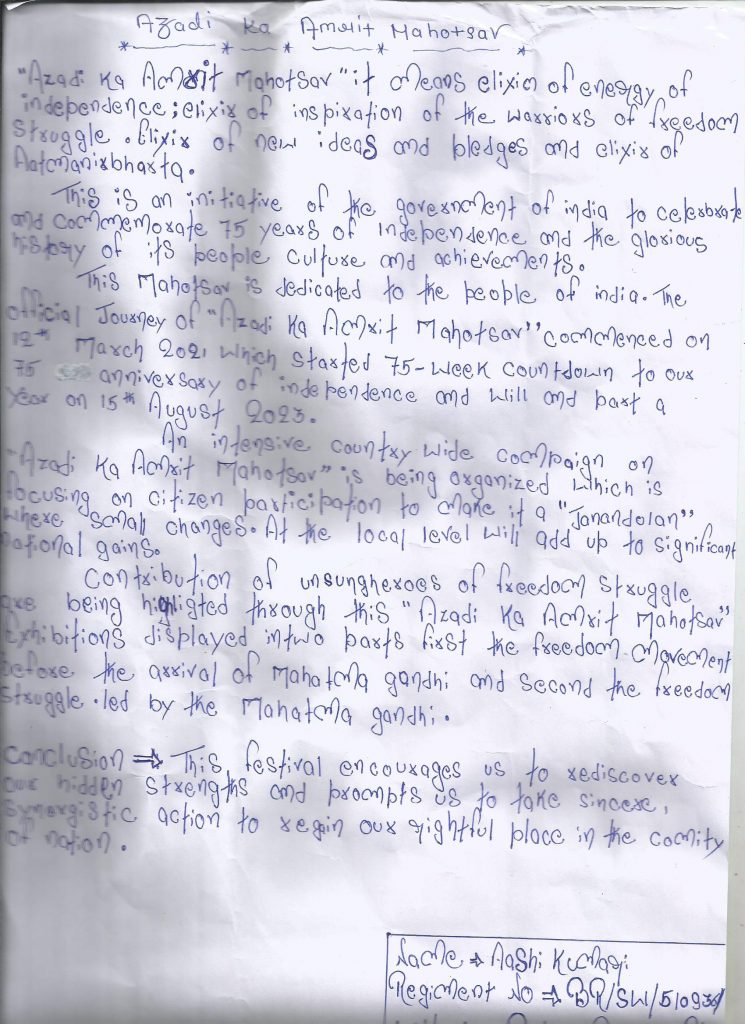 Azadi Ka Amrit Mahotsav
"Azadi Ka Amrit Mahotsav" it means elixir of energy of
independence; elixir of inspiration of the warriors of freedom
Struggle. Elixir of new ideas and pledges and elixir of
Aatmanirbharta.
This is an initiative of the government of india to celerbrate
and commemorate 75 years of Independence and the glorious
history of its people culture and achievements.
This Mahotsav is dedicated to the people of india. The
official Journey of "Azadi Ka Amrit Mahotsav" commenced on
12th March 2021 which started 75-week countdown to our
75 anniversary of independence and will and part a
year on 15th August 2023.
An intensive country wide campaign on
"Azadi Ka Amrit Mahotsav" is being organized which is
focusing on citizen participation to make it a "Janandolan"
where small changes. At the local level will add up to significant
national gains.
Contribution of unsungheroes of freedom struggle
are being highligted through this "Azadi Ka Amrit Mahotsav"
Exhibitions displayed intwo parts first the freedom movement
before the arrival of Mahatma gandhi and second the freedom
Struggle. led by the Mahatma gandhi.
Conclusion ⇒ This festival encourages us to rediscover
our hidden strengths and prompts us to take sincere,
Synergistic action to regin our rightful place in the comity
of nation.
Name ⇒ Aashi Kumari
Regiment No ⇒ BR/SW/510936/